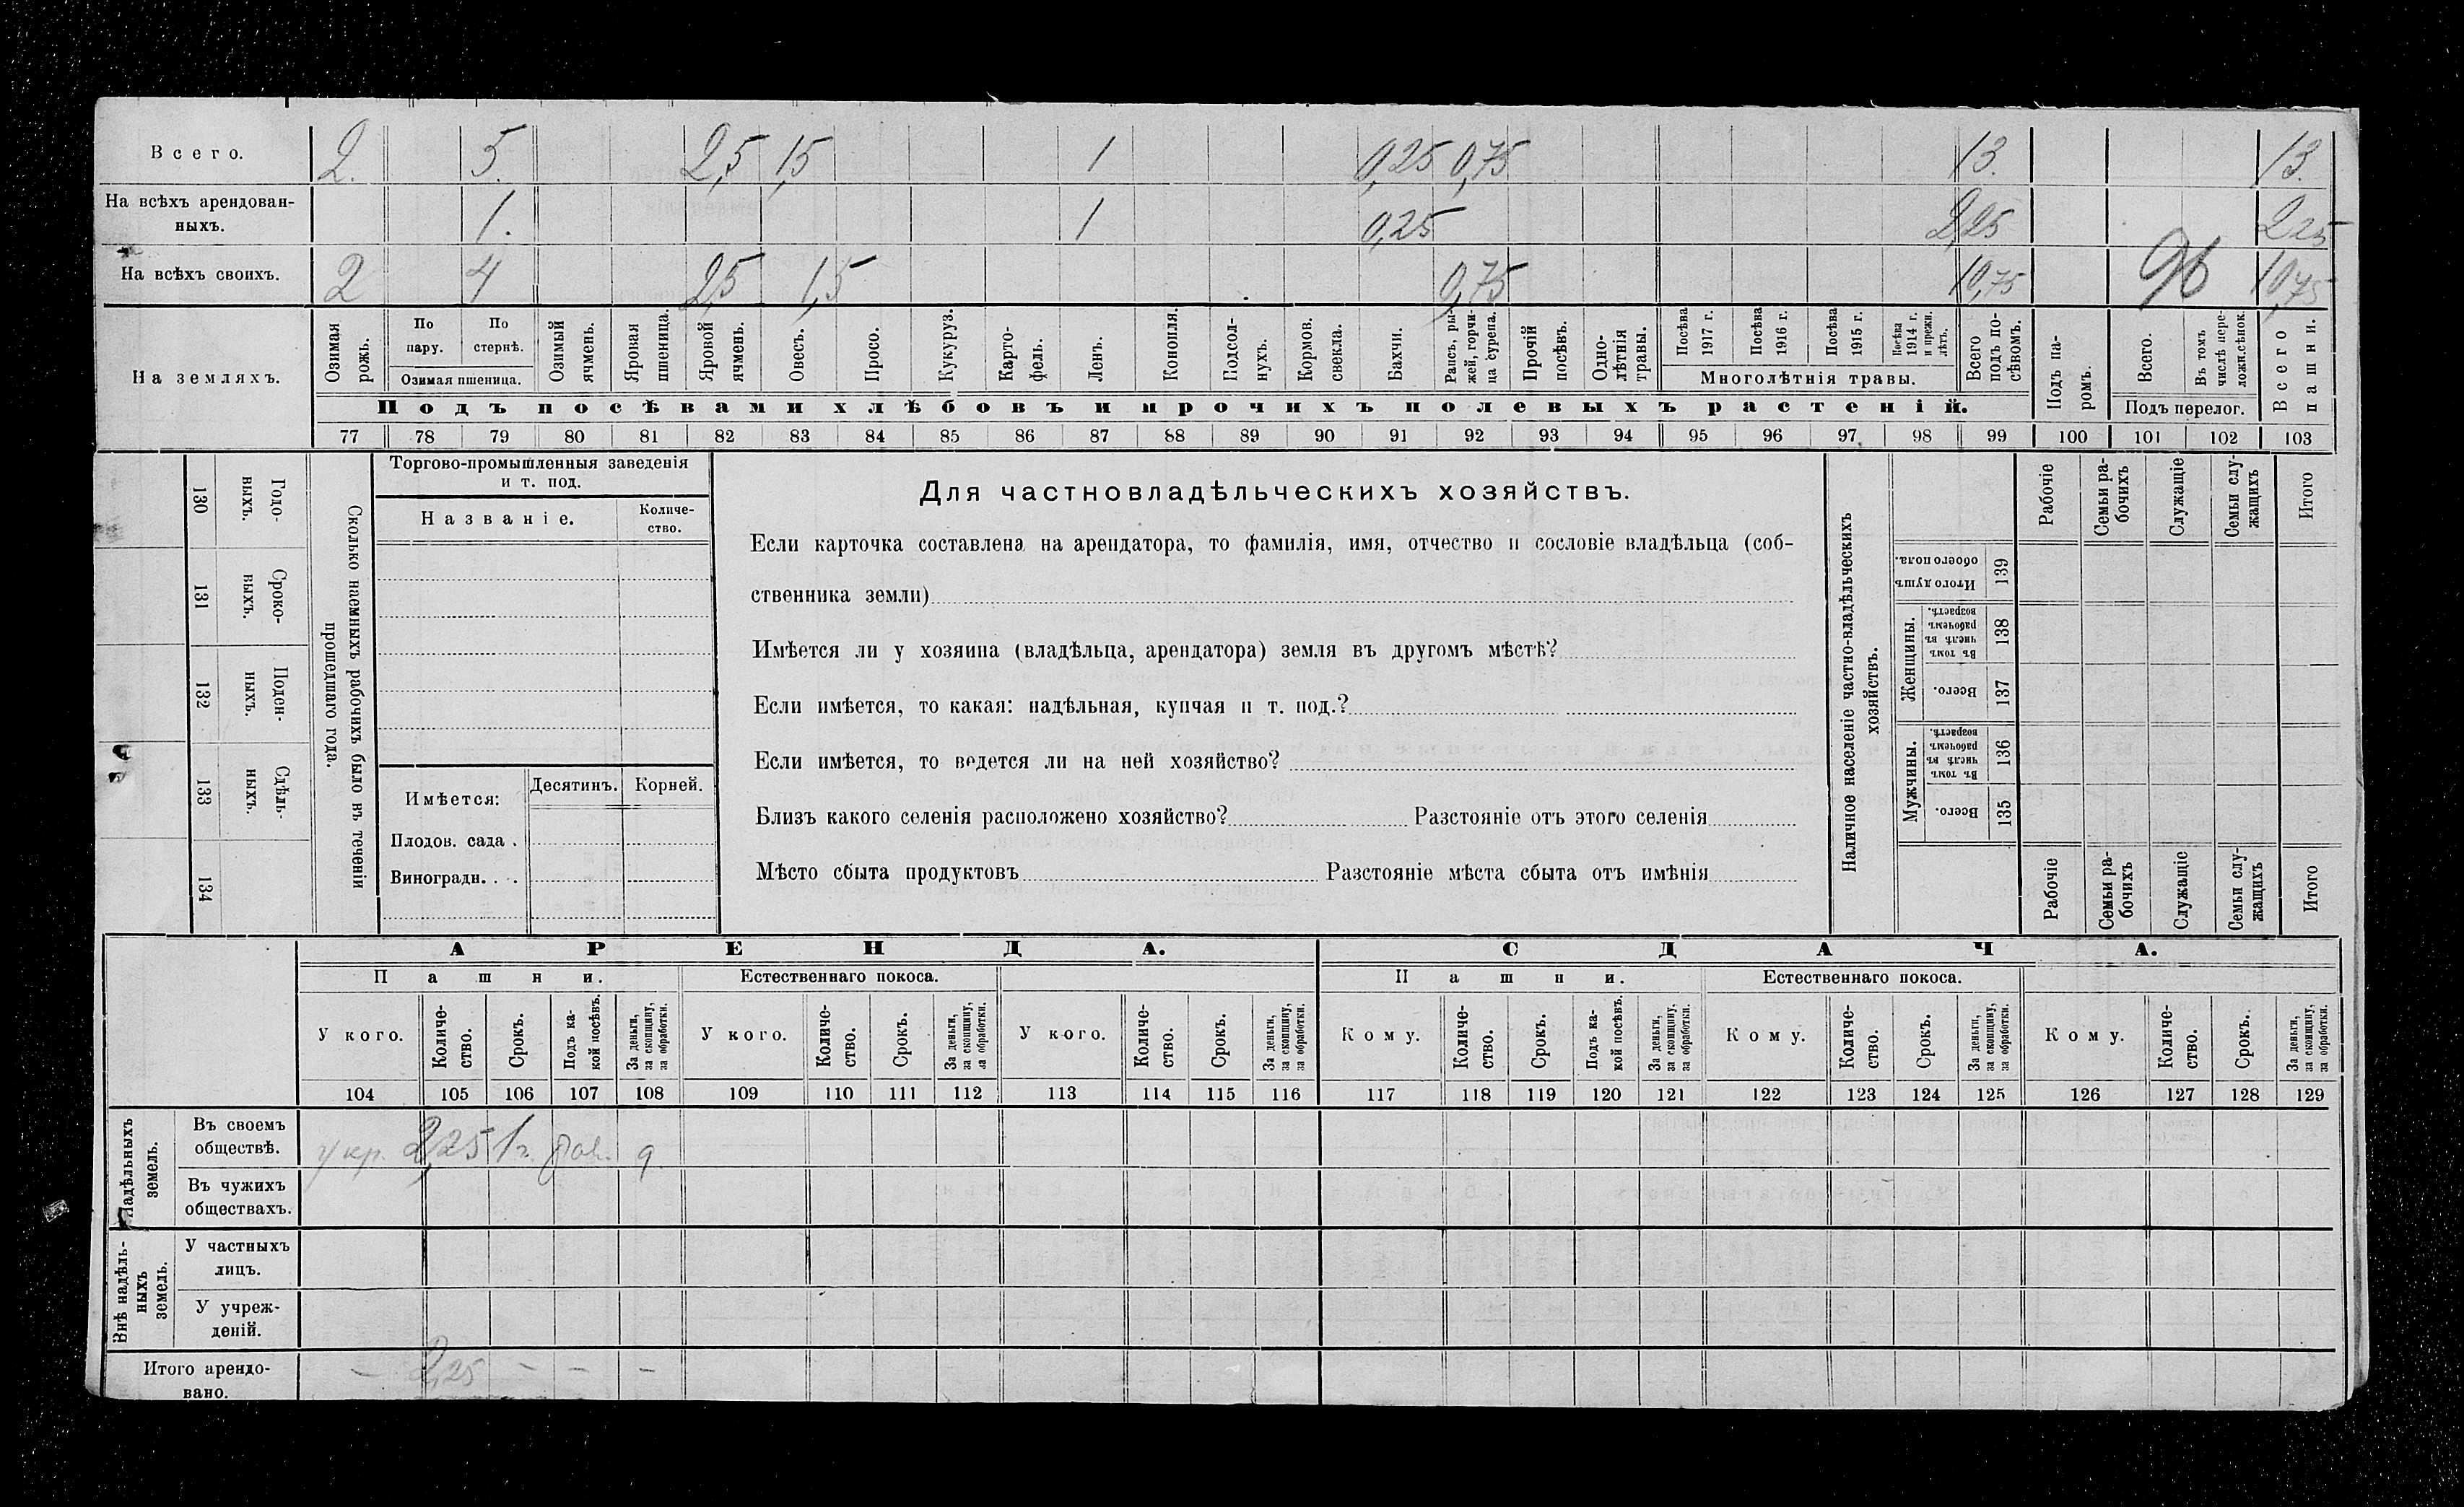 Всего. 2. 5. 2,5 1,5 1 0,25 0,75 13. 13.
На всѣхъ арендован-
ныхъ. 1. 1 0,25 2,25 2,25
На всѣхъ своихъ. 2 4 2,5 1,5 0,75 10,75 96 10,75
На земляхъ.
Озимая рожь.
По пару.
По стернѣ.
Озимая пшеница.
Озимый ячмень.
Яровая пшеница.
Яровой ячмень.
Овесъ.
Просо.
Кукуруз.
Карто-
фель.
Ленъ.
Конопля.
Подсол-
нухъ.
Кормов.
свекла.
Бахчи.
Рапсъ, ры-
жей, горчи-
ца сурепа.
Прочій
посѣвъ.
Одно-
лѣтнія
травы.
Посѣва
1917 г.
Посѣва
1916 г.
Посѣва
1915 г.
Посѣва
1914 г.
и прежн.
лѣтъ.
Многолѣтнія травы.
Всего
подъ по-
сѣвомъ.
Подъ па-
ромъ.
Всего.
Въ томъ
числѣ пере-
ложн.сѣнок.
Подъ перелог.
Всего
пашни.
Подъ посѣвами хлѣбовъ и прочихъ полевыхъ растеній.
77 78 79 80 81 82 83 84 85 86 87 88 89 90 91 92 93 94 95 96 97 98 99 100 101 102 103
130 Годо-
ныхъ.
131 Сроко-
ныхъ.
132 Поден-
ныхъ.
133 Сдѣль-
ныхъ.
134
Сколько наемныхъ рабочихъ было въ теченіи
прошедшаго года.
Торгово-промышленныя заведенія
и т. под.
Названіе.
Количе-
ство.
Имѣется: Десятинъ. Корней.
Плодов. сада .
Виноградн. . .
Для частновладѣльческихъ хозяйствъ.
Если карточка составлена на арендатора, то фамилія, имя, отчество и сословіе владѣльца (соб-
ственника земли)
Имѣется ли у хозяина (владѣльца, арендатора) земля въ другомъ мѣстѣ?
Если имѣется, то какая: надѣльная, купчая и т. под.?
Если имѣется, то ведется ли на ней хозяйство?
Близъ какого селенія расположено хозяйство? Разстояніе отъ этого селенія
Мѣсто сбыта продуктовъ Разстояніе мѣста сбыта отъ имѣнія
Наличное населеніе частно-владѣльческихъ
хозяйствъ.
Рабочіе
Семьи ра-
бочихъ
Служащіе
Семьи слу-
жащихъ
Итого
Итого душъ
обоего пола. 139
Женщины.
Въ томъ
числѣ въ
рабочемъ
возрастѣ. 138
Всего. 137
Мужчины.
Въ томъ
числѣ въ
рабочемъ
возрастѣ. 136
Всего. 135
Рабочіе
Семьи ра-
бочихъ
Служащіе
Семьи слу-
жащихъ
Итого
АРЕНДА. СДАЧА.
Пашни. Естественнаго покоса. Пашни. Естественнаго покоса.
У кого.
Количе-
ство.
Срокъ.
Подъ ка-
кой посѣвъ.
За деньги,
за скопщину,
за обработки.
У кого.
Количе-
ство.
Срокъ.
За деньги,
за скопщину,
за обработки.
У кого.
Количе-
ство.
Срокъ.
За деньги,
за скопщину,
за обработки.
Кому.
Количе-
ство.
Срокъ.
Подъ ка-
кой посѣвъ.
За деньги,
за скопщину,
за обработки.
Кому.
Количе-
ство.
Срокъ.
За деньги,
за скопщину,
за обработки.
Кому.
Количе-
ство.
Срокъ.
За деньги,
за скопщину,
за обработки.
104 105 106 107 108 109 110 111 112 113 114 115 116 117 118 119 120 121 122 123 124 125 126 127 128 129
Надѣльныхъ
земель.
Въ своемъ
обществѣ. у кр. 2,25 1 г.
Въ чужихъ
обществахъ.
Внѣ надѣль-
ныхъ
земель.
У частныхъ
лицъ.
У учреж-
деній.
Итого арендо-
вано. — 2,25 — — —